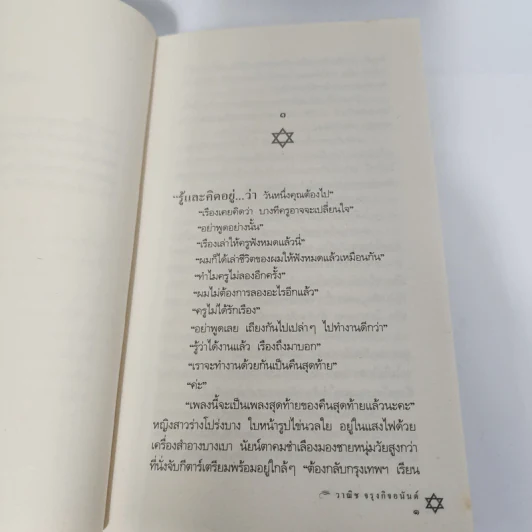 ๑
"รู้และคิดอยู่...ว่า วันหนึ่งคุณต้องไป"
"เรืองเคยคิดว่า บางทีครูอาจจะเปลี่ยนใจ"
"อย่าพูดอย่างนั้น"
"เรืองเล่าให้ครูฟังหมดแล้วนี่"
"ผมก็ได้เล่าชีวิตของผมให้ฟังหมดแล้วเหมือนกัน"
"ทำไมครูไม่ลองอีกครั้ง"
"ผมไม่ต้องการลองอะไรอีกแล้ว"
"ครูไม่ได้รักเรือง"
"อย่าพูดเลย เถียงกันไปเปล่าๆ ไปทำงานดีกว่า"
"รู้ว่าได้งานแล้ว เรืองถึงมาบอก"
"เราจะทำงานด้วยกันเป็นคืนสุดท้าย"
"ค่ะ"
"เพลงนี้จะเป็นเพลงสุดท้ายของคืนสุดท้ายแล้วนะคะ"
หญิงสาวร่างโปร่งบาง ใบหน้ารูปไข่นวลใย อยู่ในแสงไฟด้วย
เครื่องสำอางบางเบา นัยน์ตาคมชำเลืองมองชายหนุ่มวัยสูงกว่า
ที่นั่งจับกีตาร์เตรียมพร้อมอยู่ใกล้ๆ "ต้องกลับกรุงเทพฯ เรียน
วาณิช จรุงกิจอนันต์
๑